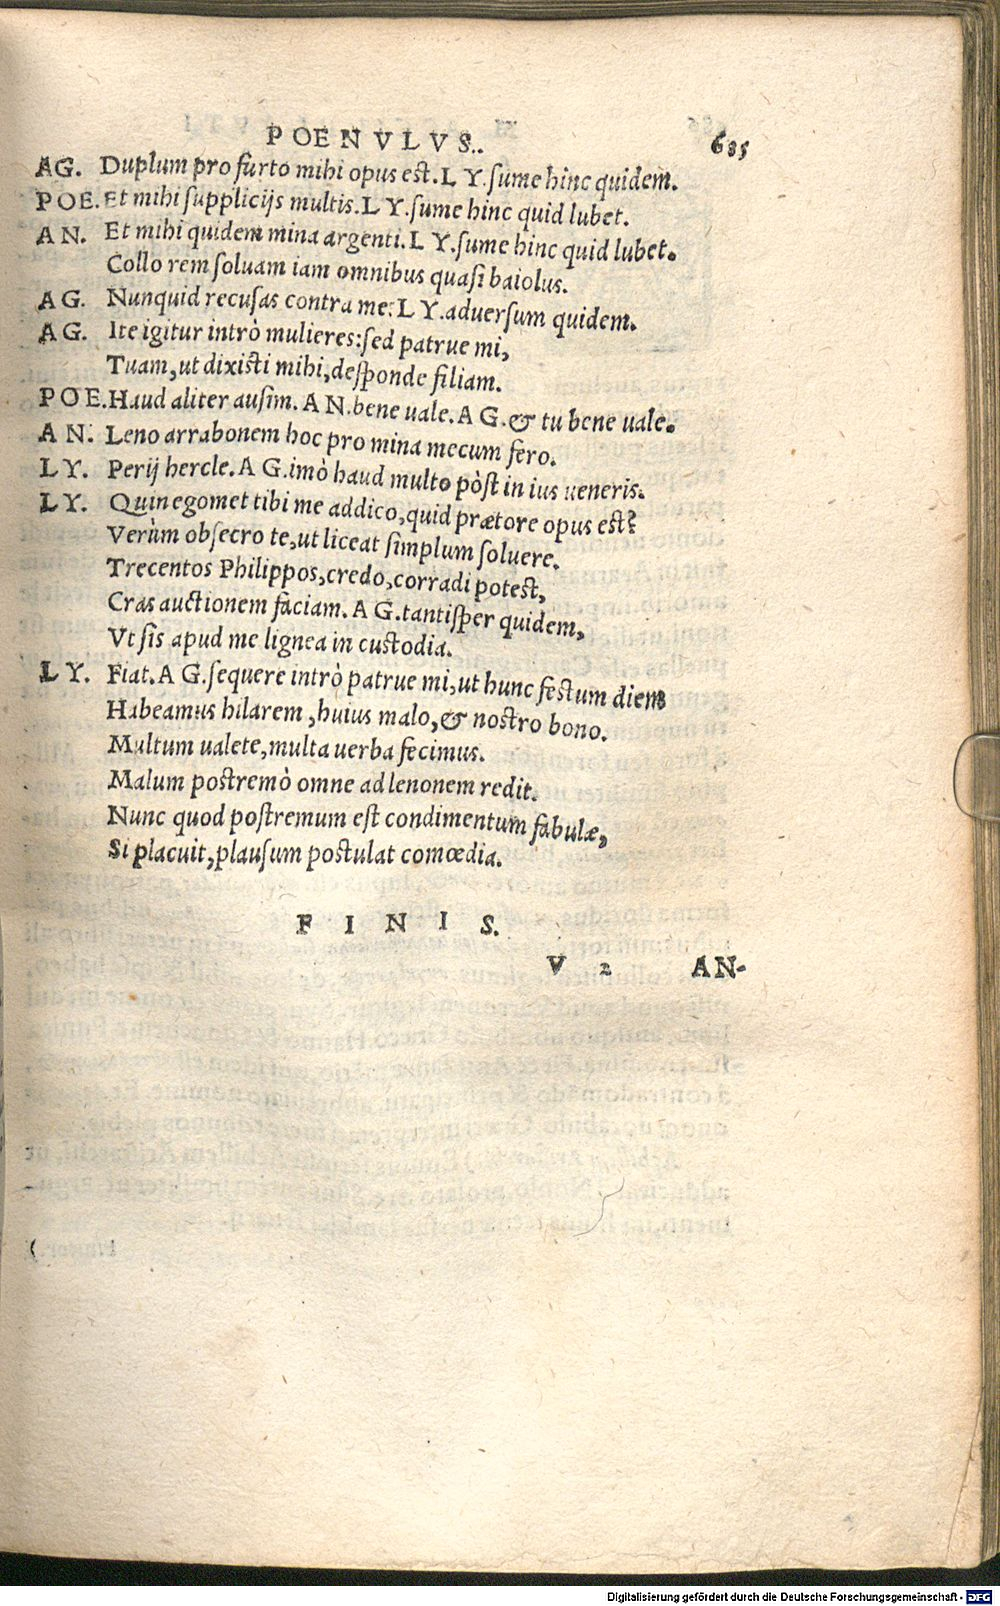 POENVLVS.. 685
AG. Duplum pro furto mihi opus est. LY. sume hinc quidem.
POE. Et mihi supplicijs multis. LY. sume hinc quid lubet.
AN. Et mihi quidem mina argenti. LY. sume hinc quid lubet.
Collo rem soluam iam omnibus quasi baiolus.
AG. Nunquid recusas contra me: LY. aduersum quidem.
AG. Ite igitur intrò mulieres: sed patrue mi,
Tuam, ut dixisti mihi, desponde filiam.
POE. Haud aliter ausim. AN. bene uale. AG. & tu bene uale.
AN. Leno arrabonem hoc pro mina mecum fero.
LY. Perij hercle. AG. imò haud multo pòst in ius ueneris.
LY. Quin egomet tibi me addico, quid prætore opus est?
Verùm obsecro te, ut liceat simplum soluere.
Trecentos Philippos, credo, corradi potest,
Cras auctionem faciam. AG. tantisper quidem,
Vt sis apud me lignea in custodia.
LY. Fiat. AG. sequere intrò patrue mi, ut hunc festum diem
Habeamus hilarem, huius malo, & nostro bono.
Multum ualete, multa uerba fecimus.
Malum postremò omne ad lenonem redit.
Nunc quod postremum est condimentum fabulæ,
Si placuit, plausum postulat comœdia.
FINIS.
V 2 AN-
Digitalisierung gefördert durch die Deutsche Forschungsgemeinschaft - DFG